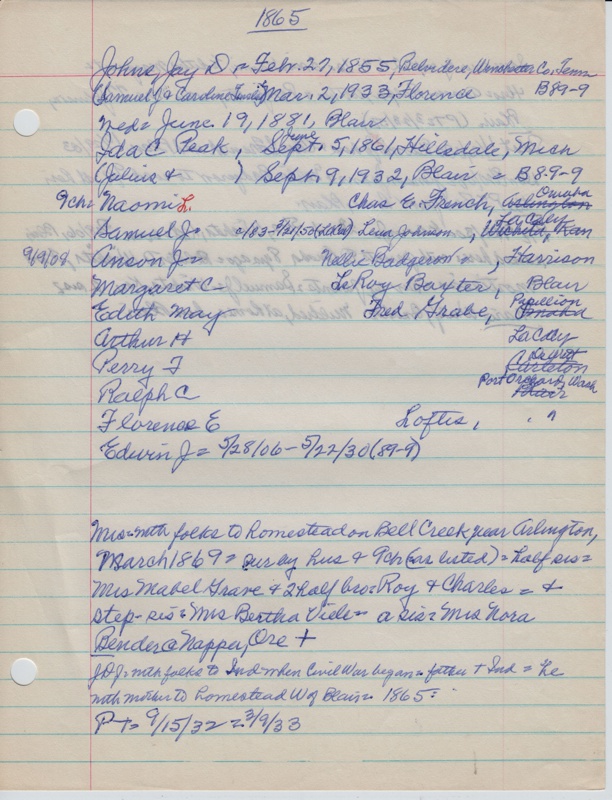 1865
Johns, Jay D = Feb. 27, 1855, Belvidere, Winchester Co. Tenn
(Samuel J & Caroline) Mar. 2, 1933, Florence B89-9
med= June 19, 1881, Blair
Ida C Peak, Sept. June 5, 1861, Hillsdale, Mich
(Julius & ) Sept. 9, 1932, Blair = B89-9
9ch= Naomi L. Chas E. French, Arlington Omaha
Samuel J= Lena Johnson, Wichita, Kan Lacey
9/9/08 Anson J= Nellie Badgerow =, Harrison
Margaret C LeRoy Baxter, Blair
Edith May Fred Grabe, Omaha Papillion
Arthur H Lacey
Perry F Carleton
Ralph C Blair Port Orchard, Wash
Florence E Loftis, "
Edwin J= 5/28/06-5/22/30 (89-9)
Mrs= mth folks to homestead on Bell Creek near Arlington,
March 1869= sur by hus & 9ch (as listed)= half sis=
Mrs Mabel Grave & 2 half bro= Roy & Charles = &
step-sis= Mrs Bertha Viele= a sis= Mrs Nora
Bender @ Nappa, Ore +
JDJ= mth folks to Ind when Civil War began= father + Ind = he
mth mother to homestead W of Blair= 1865=
P-T= 9/15/32 = 3/9/33